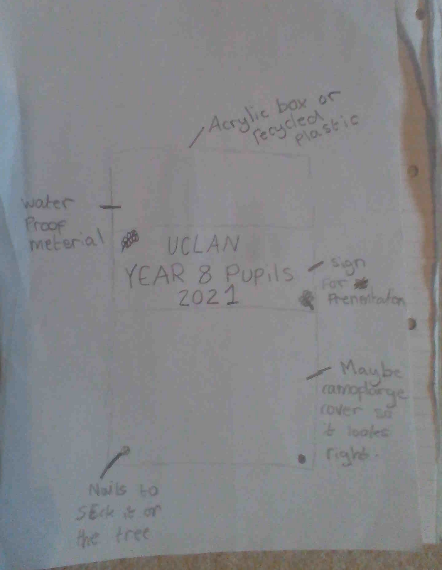 Acrylic box or
recycled
plastic
water
Proof
meterial
UCLAN
YEAR 8 Pupils
2021
sign
for
Maybe
cover so
it looks
right.
Nails to
Stick it on
the tree